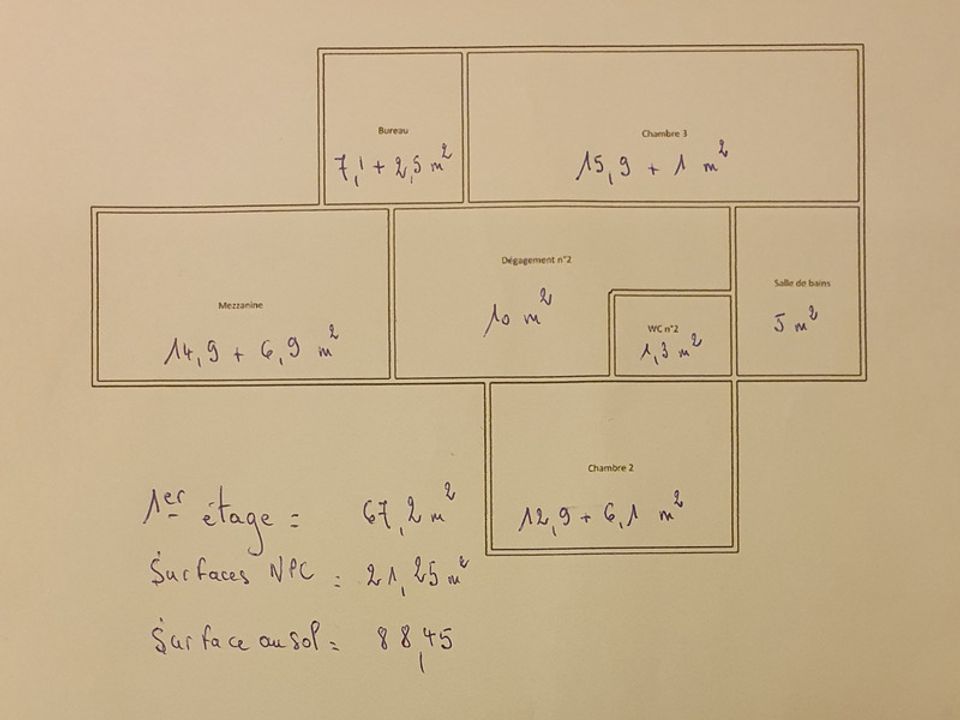 Bureau
7,1 + 2,5 m²
Chambre 3
15,9 + 1 m²
Mezzanine
14,9 + 6,9 m²
Dégagement n°2
10 m²
WC n°2
1,3 m²
Salle de bains
5 m²
Chambre 2
12,9 + 6,1 m²
1er étage = 67,2 m²
Surfaces NPC = 21,25 m²
Surface au sol = 88,45